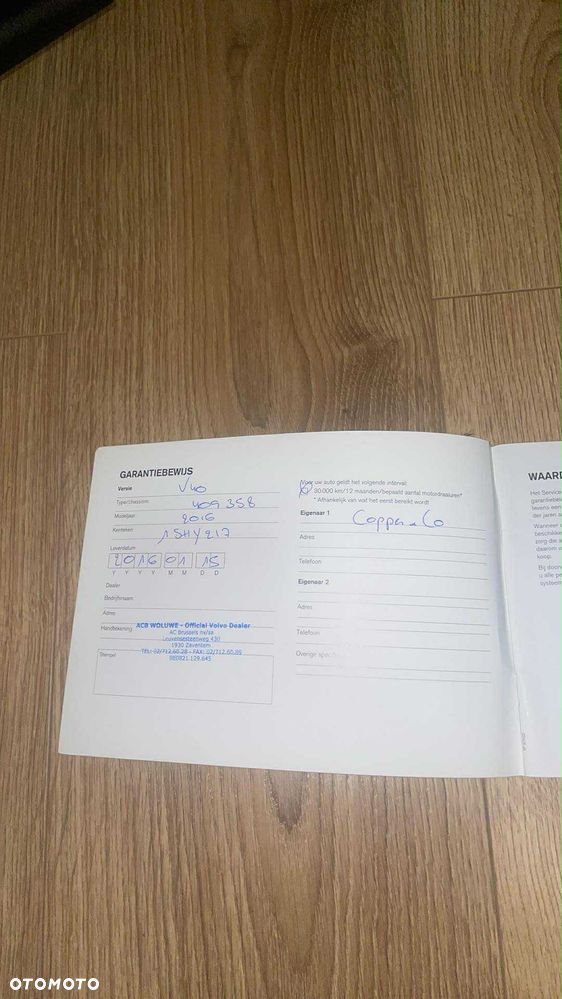 GARANTIEBEWIJS
Versie V40
Type/chassisnr. 409 358
Modeljaar 2016
Kenteken 1 SHY 217
Leverdatum
2016 01 15
Y Y Y Y M M D D
Dealer
Bedrijfsnaam
Adres
Handtekening
ACB WOLUWE - Official Volvo Dealer
AC Brussels nv/sa
Leuvensesteenweg 430
1930 Zaventem
TEL: 02/712.60.28 - FAX: 02/712.60.89
BE0821.129.645
Stempel
Voor uw auto geldt het volgende interval:
30.000 km/12 maanden/bepaald aantal motordraaiuren*
* Afhankelijk van wat het eerst bereikt wordt
Eigenaar 1
Adres
Telefoon
Eigenaar 2
Adres
Telefoon
Overige
WAARD
Het Service
garantiebe
tevens een
der jaren a
Wanneer u
beschikke
zorg die a
daarom a
koop.
Bij door
u alle pe
systeem
OTOMOTO